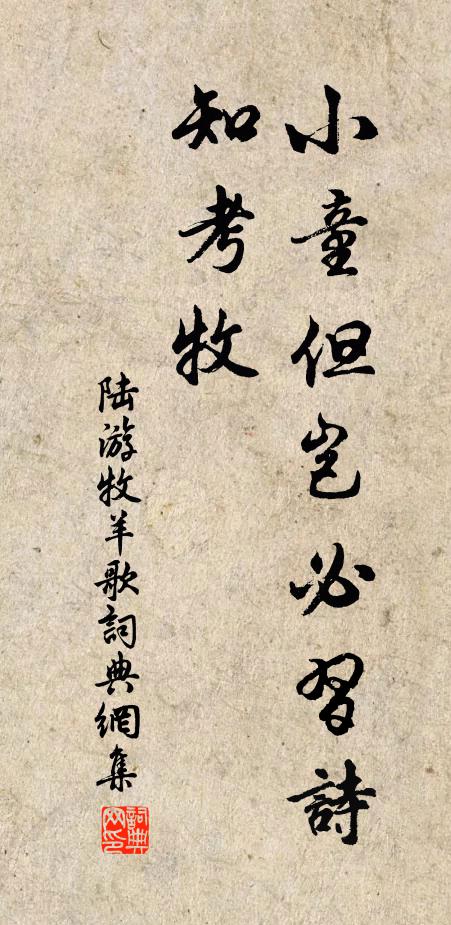 小童但岂必習詩
知考牧
陆游牧羊歌詞典網集
詞典
网印